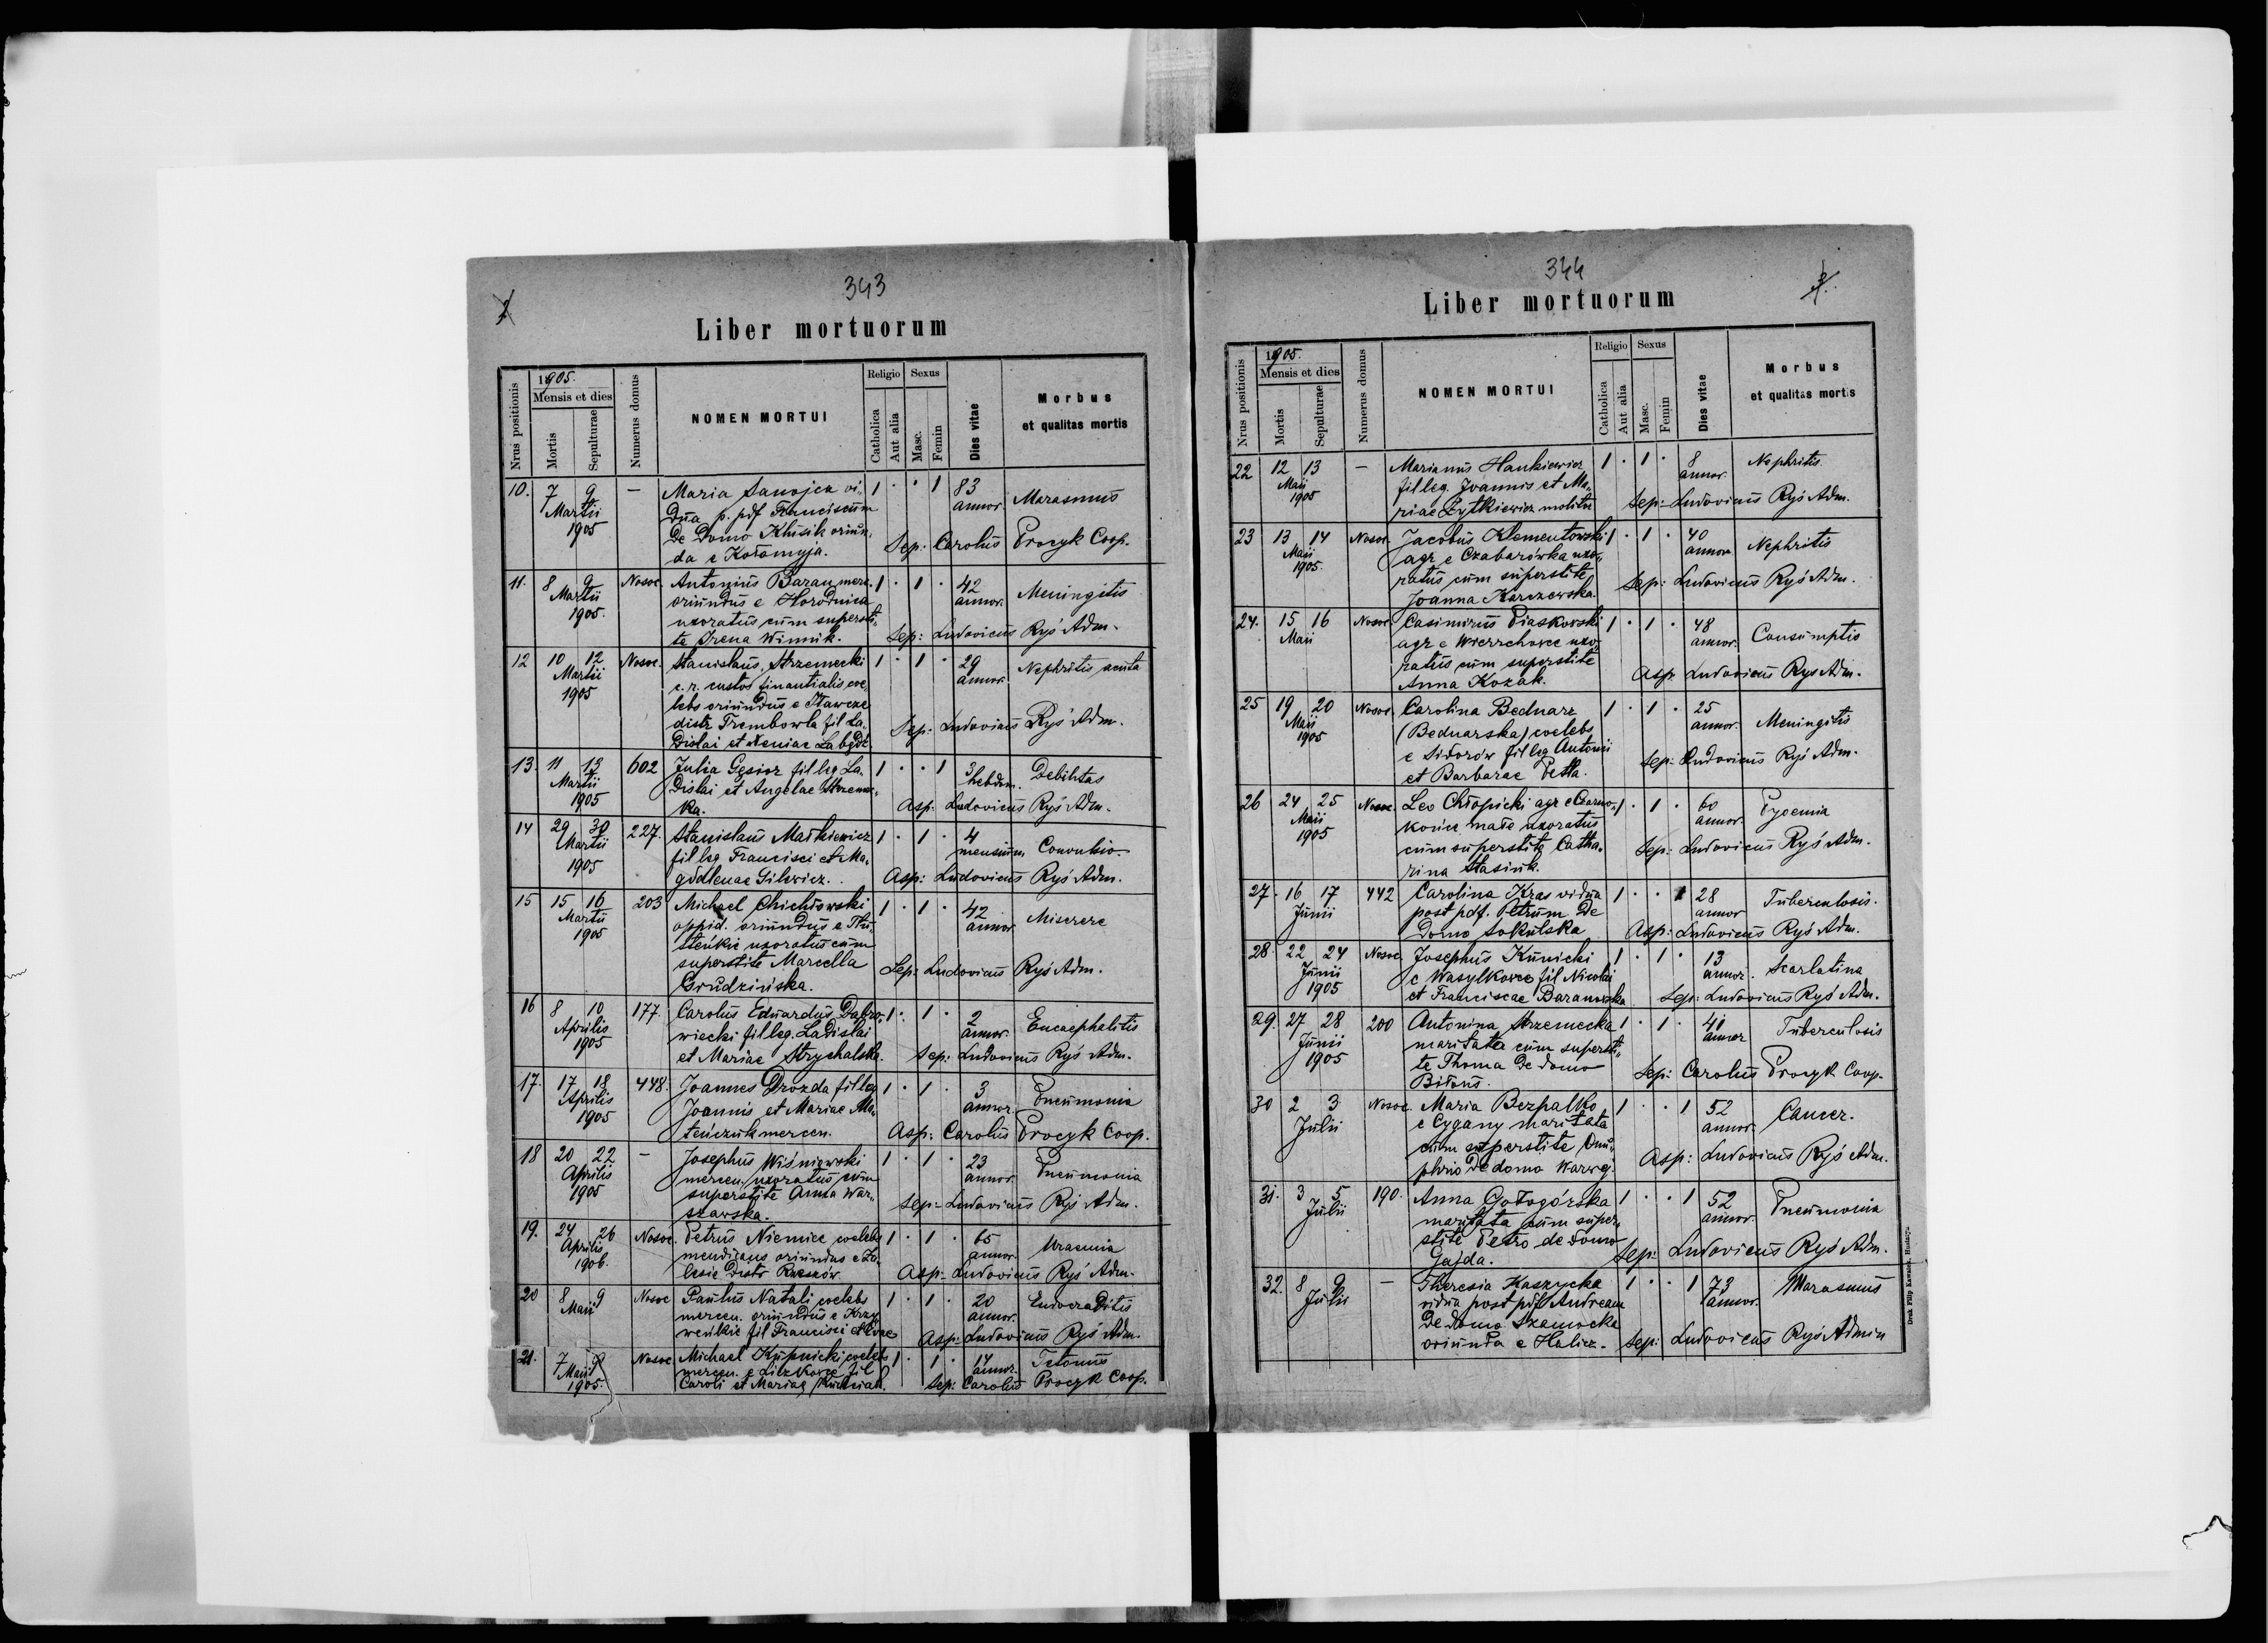 343
Liber mortuorum
Nrus positionis
1905.
Mensis et dies
Mortis
Sepulturae
Numerus domus
NOMEN MORTUI
Religio
Catholica
Aut alia
Sexus
Masc.
Femin
Dies vitae
Morbus
et qualitas mortis
10. 7 9 — Maria Sanojca vi- 1 . . 1 83 Marasmus
Martii dua p. pdf Franciscum annor.
1905 de domo Klusik oriun-
da e Kołomyja. Sep: Carolus Procyk Coop.
11. 8 9 Nosoc. Antonius Baran merc. 1 . 1 . 42 Meningitis
Martii oriundus e Horodnica annor.
1905. uxoratus cum supersti-
te Irena Winnik. Sep: Ludovicus Ryś Adm.
12 10 12 Nosoc. Stanislaus Strzemecki 1 . 1 . 29 Nephritis acuta
Martii c. r. custos finantialis coe- annor.
1905 lebs oriundus e Iławcze
distr Trembowla fil La-
dislai et Xeniae Sep: Ludovicus Ryś Adm.
13. 11 13 602 Julia Gęsior fil leg La- 1 . . 1 3 Debilitas
Martii dislai et Angelae hebdm.
1905 ka. Asp: Ludovicus Ryś Adm.
14 29 30 227. Stanislaus Maśkiewicz 1 . 1 . 4 Convulsio
Martii fil leg Francisci et Ma- mensium
1905 gdalenae Gilewicz. Asp: Ludovicus Ryś Adm.
15 15 16 203 Michael Chichłowski 1 . 1 . 42 Miserere
Martii oppid. oriundus e Tłu- annor
1905 steńkie uxoratus cum
superstite Marcella Sep: Ludovicus Ryś Adm.
Grudzińska.
16 8 10 177. Carolus Eduardus Dabro- 1 . 1 . 2 Encaephalitis
Aprilis wiecki fil leg. Ladislai annor.
1905 et Mariae Strychalska. Sep: Ludovicus Ryś Adm.
17. 17 18 448. Joannes Drozda fil leg 1 . 1 . 3 Pneumonia
Aprilis Joannis et Mariae Ma- annor.
1905 teńczuk mercen. Asp: Carolus Procyk Coop.
18 20 22 — Josephus Wiśniewski 1 . 1 . 23 Pneumonia
Aprilis mercen. uxoratus cum annor.
1905 superstite Anna War-
szawska. Sep: Ludovicus Ryś Adm.
19. 24 26 Nosoc. Petrus Niemiec coelebs 1 . 1 . 65 Uraemia
Aprilis mendicans oriundus e Za- annor.
1906. lesie Distr Rzeszów. Asp: Ludovicus Ryś Adm.
20 8 9 Nosoc Paulus Natali coelebs 1 . 1 . 20 Endocraditis
Maii mercen. oriundus e Krzy- annor.
weńkie fil Francisci et Evae Asp: Ludovicus Ryś Adm.
21. 7 Nosoc Michael Kupnicki coelebs 1 . 1 . 14 Tetanus
Maii mercen. e Liczkowce fil annor.
1905. Caroli et Mariae Sep: Carolus Procyk Coop.
344
Liber mortuorum
Nrus positionis
1905.
Mensis et dies
Mortis
Sepulturae
Numerus domus
NOMEN MORTUI
Religio
Catholica
Aut alia
Sexus
Masc.
Femin
Dies vitae
Morbus
et qualitas mortis
22 12 13 — Marianus Hankiewicz 1 . 1 . 8 Nephritis
Maii fil leg. Joannis et Ma- annor.
1905 riae Żytkiewicz molitor Sep: Ludovicus Ryś Adm.
23 13 14 Nosoc. Jacobus Klementowski 1 . 1 . 40 Nephritis
Maii agr. e Czabarówka uxo- annor.
1905. ratus cum superstite
Joanna Karczewska. Sep: Ludovicus Ryś Adm.
24. 15 16 Nosoc Casimirus Piaskowski 1 . 1 . 48 Consumptio
Maii agr e Wierzchowce uxo- annor.
ratus cum superstite
Anna Kozak. Asp: Ludovicus Rys Adm.
25 19 20 Nosoc. Carolina Bednarz 1 . 1 . 25 Meningitis
Maii (Bednarska) coelebs annor.
1905 e Sidorów fil leg Antonii
et Barbarae Petla. Sep: Ludovicus Ryś Adm.
26 24 25 Nosoc. Leo Chłopicki agr e Czarno- 1 . 1 . 60 Pyoemia
Maii końce małe uxoratus annor.
1905 cum superstite Catha-
rina Stasiuk. Sep: Ludovicus Ryś Adm.
27. 16 17 442 Carolina Kras vidua 1 . . 1 28 Tuberculosis.
Junii post pdf. Petrum de annor
domo Sokulska Asp: Ludovicus Ryś Adm.
28 22 24 Nosoc. Josephus Kunicki 1 . 1 . 13 Scarlatina
Junii e Wasylkowce fil Nicolai annor.
1905 et Franciscae Baranowska Sep: Ludovicus Ryś Adm.
29. 27 28 200 Antonina Strzemecka 1 . 1 . 41 Tuberculosis
Junii maritata cum supersti- annor
1905 te Thoma de domo
Bilous. Sep: Carolus Procyk Coop.
30 2 3 Nosoc. Maria Bezpalko 1 . . 1 52 Cancer.
Julii e Cygany maritata annor.
cum superstite Onu-
phrio de domo Asp: Ludovicus Ryś Adm.
31. 3 5 190. Anna Gołogórska 1 . . 1 52 Pneumonia
Julii maritata cum super- annor.
stite Petro de domo
Gajda. Sep: Ludovicus Ryś Adm.
32. 8 9 — Theresia Kaszycka 1 . . 1 73 Marasmus
Julii vidua post pdf Andream annor.
de domo Szamocka
oriunda e Halicz. Sep: Ludovicus Ryś Admin
Druk Filip Kawaler, Husiatyn